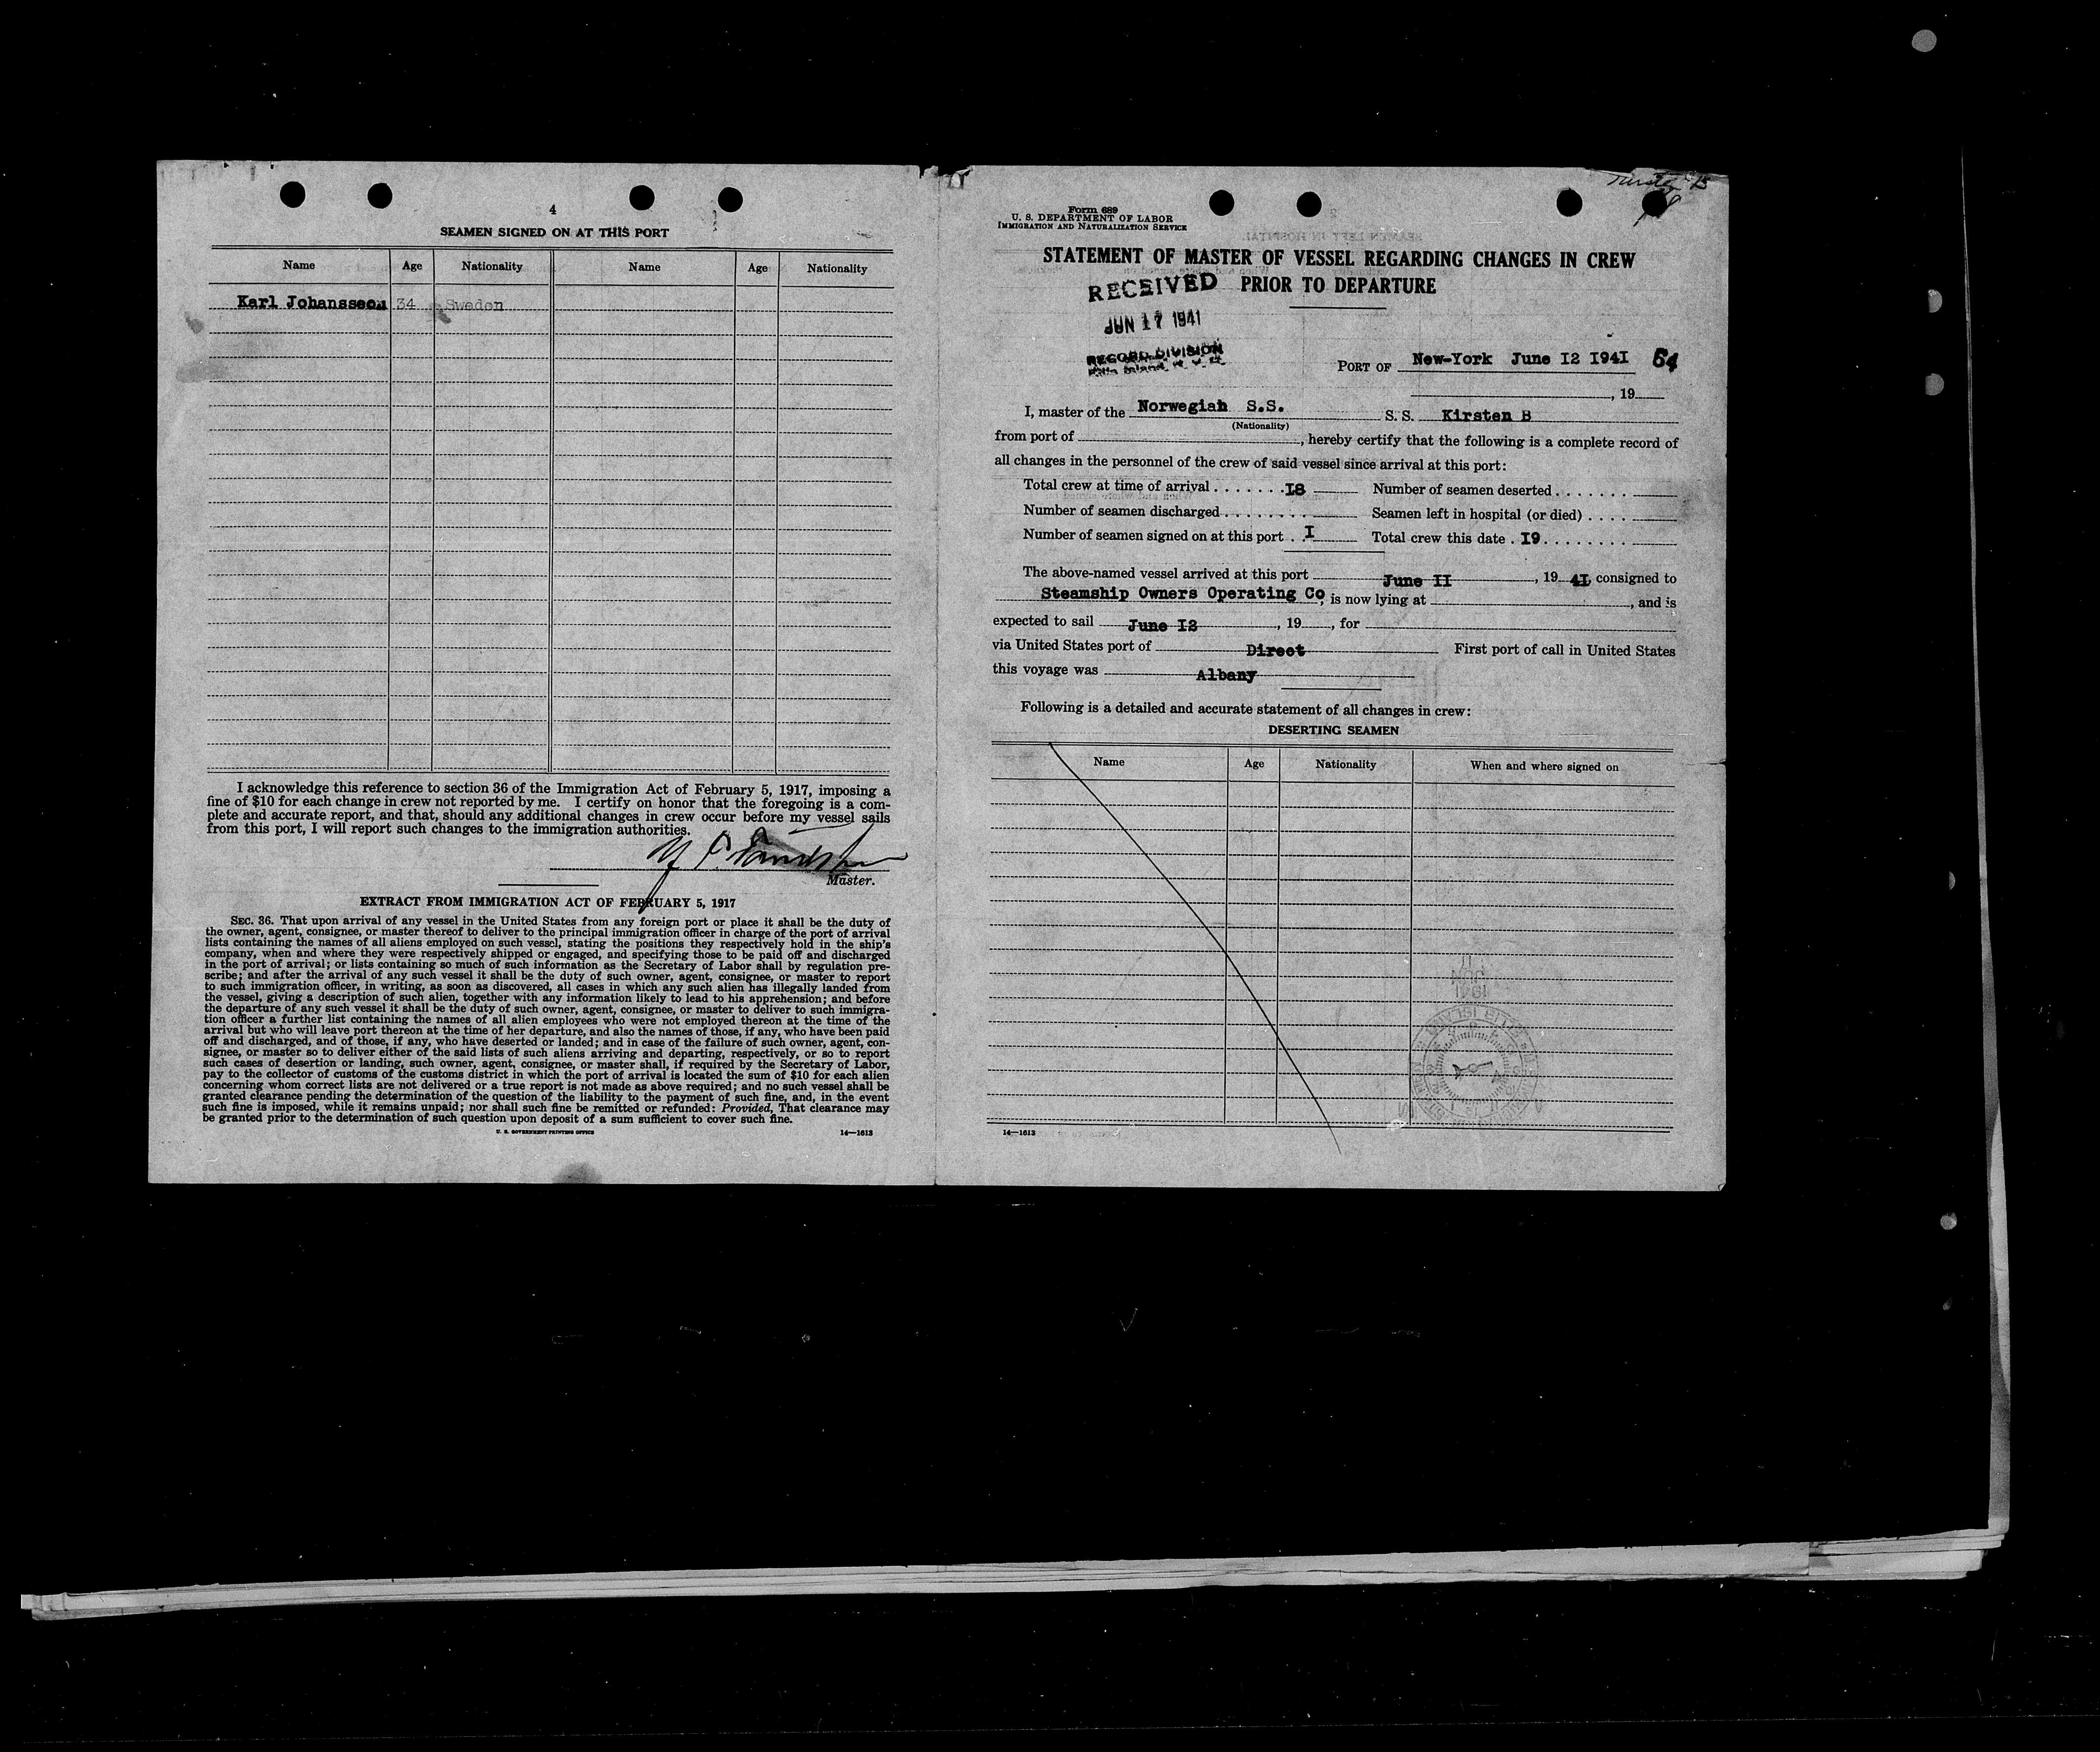 4
SEAMEN SIGNED ON AT THIS PORT
Name Age Nationality Name Age Nationality
Karl Johansseon 34 Sweden
I acknowledge this reference to section 36 of the Immigration Act of February 5, 1917, imposing a
fine of $10 for each change in crew not reported by me. I certify on honor that the foregoing is a com-
plete and accurate report, and that, should any additional changes in crew occur before my vessel sails
from this port, I will report such changes to the immigration authorities.
Master.
EXTRACT FROM IMMIGRATION ACT OF FEBRUARY 5, 1917
SEC. 36. That upon arrival of any vessel in the United States from any foreign port or place it shall be the duty of
the owner, agent, consignee, or master thereof to deliver to the principal immigration officer in charge of the port of arrival
lists containing the names of all aliens employed on such vessel, stating the positions they respectively hold in the ship's
company, when and where they were respectively shipped or engaged, and specifying those to be paid off and discharged
in the port of arrival; or lists containing so much of such information as the Secretary of Labor shall by regulation pre-
scribe; and after the arrival of any such vessel it shall be the duty of such owner, agent, consignee, or master to report
to such immigration officer, in writing, as soon as discovered, all cases in which any such alien has illegally landed from
the vessel, giving a description of such alien, together with any information likely to lead to his apprehension; and before
the departure of any such vessel it shall be the duty of such owner, agent, consignee, or master to deliver to such immigra-
tion officer a further list containing the names of all alien employees who were not employed thereon at the time of the
arrival but who will leave port thereon at the time of her departure, and also the names of those, if any, who have been paid
off and discharged, and of those, if any, who have deserted or landed; and in case of the failure of such owner, agent, con-
signee, or master so to deliver either of the said lists of such aliens arriving and departing, respectively, or so to report
such cases of desertion or landing, such owner, agent, consignee, or master shall, if required by the Secretary of Labor,
pay to the collector of customs of the customs district in which the port of arrival is located the sum of $10 for each alien
concerning whom correct lists are not delivered or a true report is not made as above required; and no such vessel shall be
granted clearance pending the determination of the question of the liability to the payment of such fine, and, in the event
such fine is imposed, while it remains unpaid; nor shall such fine be remitted or refunded: Provided, That clearance may
be granted prior to the determination of such question upon deposit of a sum sufficient to cover such fine.
U. S. GOVERNMENT PRINTING OFFICE 14—1613
Form 689
U. S. DEPARTMENT OF LABOR
IMMIGRATION AND NATURALIZATION SERVICE
STATEMENT OF MASTER OF VESSEL REGARDING CHANGES IN CREW
PRIOR TO DEPARTURE
RECEIVED
JUN 17 1941
RECORD DIVISION
Ellis Island, N. Y. H.
PORT OF New-York June I2 I94I 54
, 19
I, master of the Norwegian S.S. S. S. Kirsten B
(Nationality)
from port of , hereby certify that the following is a complete record of
all changes in the personnel of the crew of said vessel since arrival at this port:
Total crew at time of arrival . . . . . . . I8 Number of seamen deserted . . . . . . .
Number of seamen discharged . . . . . . . . Seamen left in hospital (or died) . . . .
Number of seamen signed on at this port . . I Total crew this date . I9 . . . . . . . .
The above-named vessel arrived at this port June II , 19 4I, consigned to
Steamship Owners Operating Co, is now lying at , and is
expected to sail June I2 , 19 , for
via United States port of Direct First port of call in United States
this voyage was Albany
Following is a detailed and accurate statement of all changes in crew:
DESERTING SEAMEN
Name Age Nationality When and where signed on
14—1613